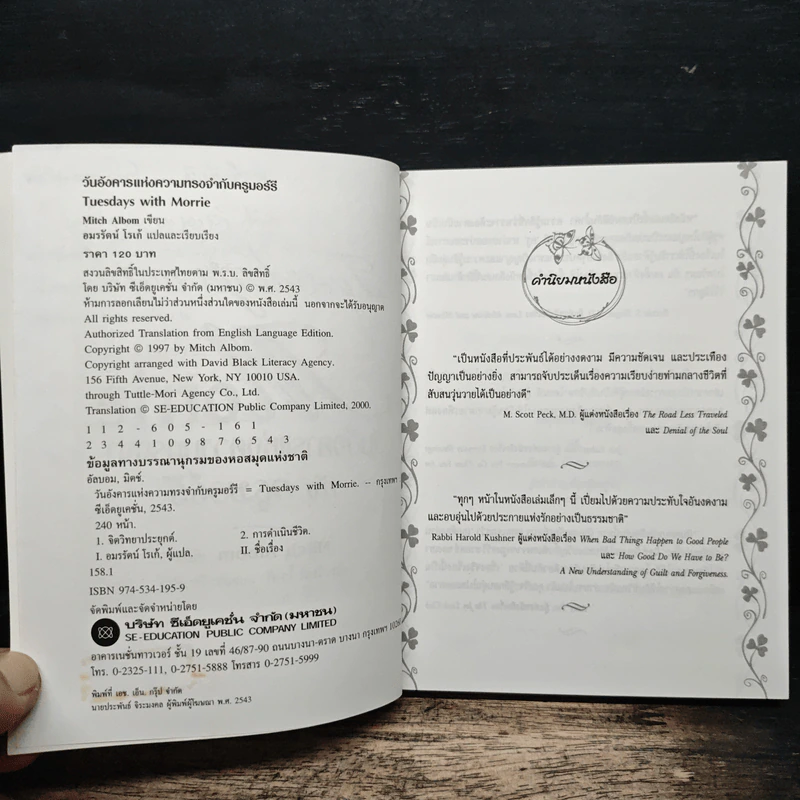 วันอังคารแห่งความทรงจำกับครูมอร์รี
Tuesdays with Morrie
Mitch Albom เขียน
อมรรัตน์ โรเก้ แปลและเรียบเรียง
ราคา 120 บาท
สงวนลิขสิทธิ์ในประเทศไทยตาม พ.ร.บ. ลิขสิทธิ์
โดย บริษัท ซีเอ็ดยูเคชั่น จำกัด (มหาชน) © พ.ศ. 2543
ห้ามการลอกเลียนไม่ว่าส่วนหนึ่งส่วนใดของหนังสือเล่มนี้ นอกจากจะได้รับอนุญาต
All rights reserved.
Authorized Translation from English Language Edition.
Copyright © 1997 by Mitch Albom.
Copyright arranged with David Black Literacy Agency.
156 Fifth Avenue, New York, NY 10010 USA.
through Tuttle-Mori Agency Co., Ltd.
Translation © SE-EDUCATION Public Company Limited, 2000.
1 1 2 - 6 0 5 - 1 6 1
2 3 4 4 1 0 9 8 7 6 5 4 3
ข้อมูลทางบรรณานุกรมของหอสมุดแห่งชาติ
อัลบอม, มิตช์.
วันอังคารแห่งความทรงจำกับครูมอร์รี = Tuesdays with Morrie. -- กรุงเทพฯ
ซีเอ็ดยูเคชั่น, 2543.
240 หน้า.
1. จิตวิทยาประยุกต์. 2. การดำเนินชีวิต.
I. อมรรัตน์ โรเก้, ผู้แปล. II. ชื่อเรื่อง
158.1
ISBN 974-534-195-9
จัดพิมพ์และจัดจำหน่ายโดย
บริษัท ซีเอ็ดยูเคชั่น จำกัด (มหาชน)
SE-EDUCATION PUBLIC COMPANY LIMITED
อาคารเนชั่นทาวเวอร์ ชั้น 19 เลขที่ 46/87-90 ถนนบางนา-ตราด บางนา กรุงเทพฯ 10260
โทร. 0-2325-111, 0-2751-5888 โทรสาร 0-2751-5999
พิมพ์ที่ เอช. เอ็น. กรุ๊ป จำกัด
นายประพันธ์ จิระมงคล ผู้พิมพ์ผู้โฆษณา พ.ศ. 2543
คำนิยมหนังสือ
"เป็นหนังสือที่ประพันธ์ได้อย่างงดงาม มีความชัดเจน และประเทือง
ปัญญาเป็นอย่างยิ่ง สามารถจับประเด็นเรื่องความเรียบง่ายท่ามกลางชีวิตที่
สับสนวุ่นวายได้เป็นอย่างดี"
M. Scott Peck, M.D. ผู้แต่งหนังสือเรื่อง The Road Less Traveled
และ Denial of the Soul
"ทุกๆ หน้าในหนังสือเล่มเล็กๆ นี้ เปี่ยมไปด้วยความประทับใจอันงดงาม
และอบอุ่นไปด้วยประกายแห่งรักอย่างเป็นธรรมชาติ"
Rabbi Harold Kushner ผู้แต่งหนังสือเรื่อง When Bad Things Happen to Good People
และ How Good Do We Have to Be?
A New Understanding of Guilt and Forgiveness.